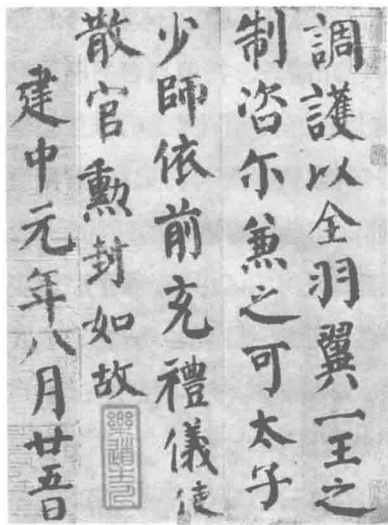 調護以全羽翼一王之
制咨尓兼之可太子
少師依前充禮儀使
散官勳封如故
建中元年八月廿五日